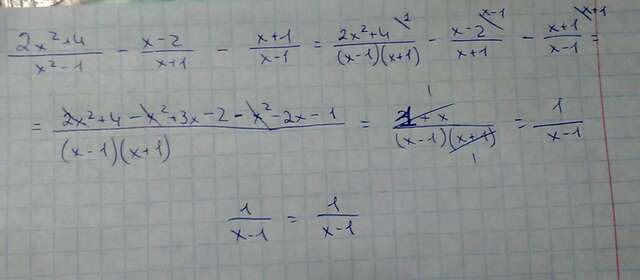 (2x²+4)/(x²-1) - (x-2)/(x+1) - (x+1)/(x-1) = (2x²+4)/((x-1)(x+1)) \1 - (x-2)/(x+1) \x-1 - (x+1)/(x-1) \x+1 =
= (2x²+4-x²+3x-2-x²-2x-1)/((x-1)(x+1)) = (1+x)/((x-1)(x+1)) = 1/(x-1)
1/(x-1) = 1/(x-1)